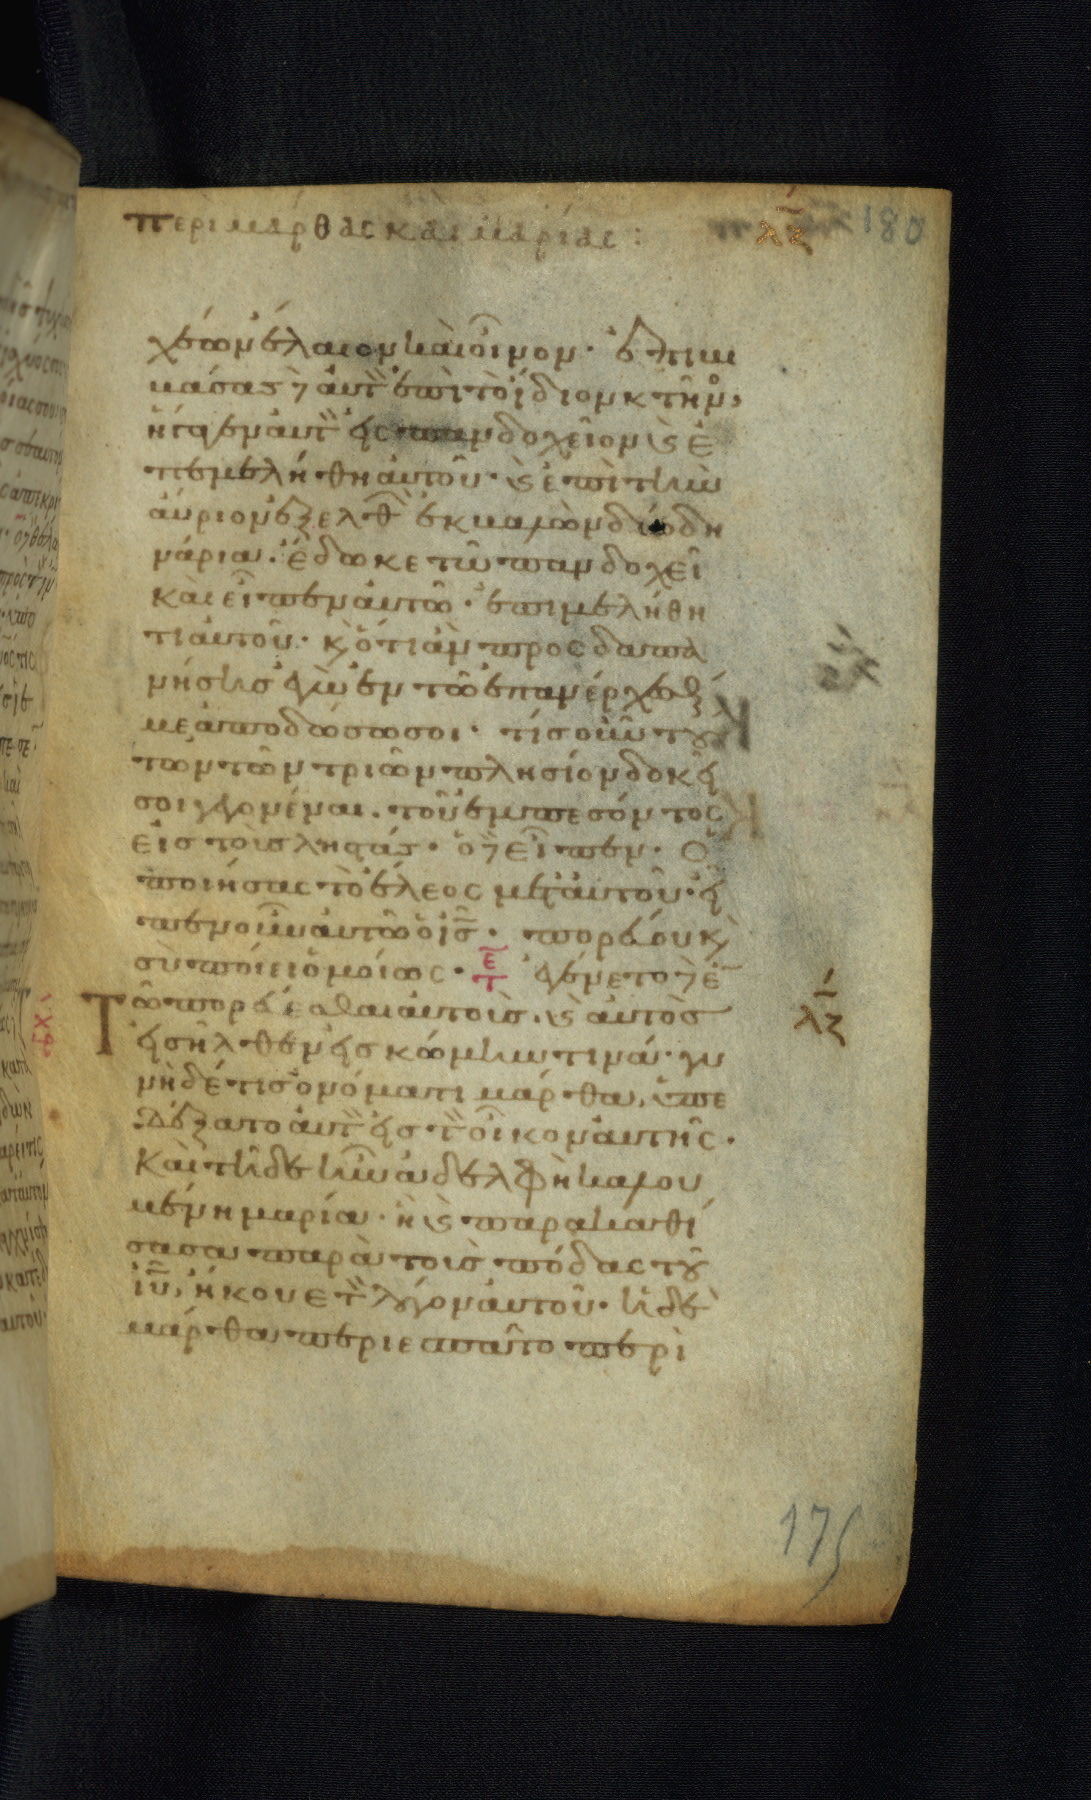 περὶ μάρθας καὶ μαρίας: λζ 180
χέων ἔλαιον καὶ οἶνον· ἐπιβι
βάσας δὲ αὐτὸν ἐπὶ τὸ ἴδιον κτῆνος,
ἤγαγεν αὐτὸν εἰς πανδοχεῖον καὶ ἐ
πεμελήθη αὐτοῦ· καὶ ἐπὶ τὴν
αὔριον ἐξελθὼν ἐκβαλὼν δύο δη
νάρια. ἔδωκε τῶ πανδοχεῖ
καὶ εἶπεν αὐτῶ· ἐπιμελήθη
τι αὐτοῦ· κ ὅτι ἂν προσδαπα
νήσῃς ἐγὼ ἐν τῶ ἐπανέρχεσθαί
με ἀποδώσω σοι· τίς οὖν του
των τῶν τριῶν πλησίον δοκεῖ
σοι γεγονέναι. τοῦ ἐμπεσόντος
εἰς τοὺς ληστάς· ὁ δὲ εἶπεν· Ὁ
ποιήσας τὸ ἔλεος μετ αὐτοῦ· εἶ
πεν οὖν αὐτῶ ὁ ις· πορεύου κ
σὺ ποίει ὁμοίως· τε ἐγένετο δὲ ἐν
Τῶ πορεύεσθαι αὐτοὺς. καὶ αὐτὸς λζ
εἰσῆλθεν εἰς κώμην τινά· γυ
νὴ δέ τις ὀνόματι μάρθα, ὑπε
δέξατο αὐτὸν εἰς τὸν οἶκον αὐτῆς.
Καὶ τῆδε ἦν ἀδελφὴ καλου
μένη μαρία· ἣ καὶ παρακαθί
σασα παρὰ τοὺς πόδας τοῦ
ιυ, ἤκουε τὸν λόγον αὐτοῦ· ἡ δὲ
μάρθα περιεσπᾶτο περὶ
175